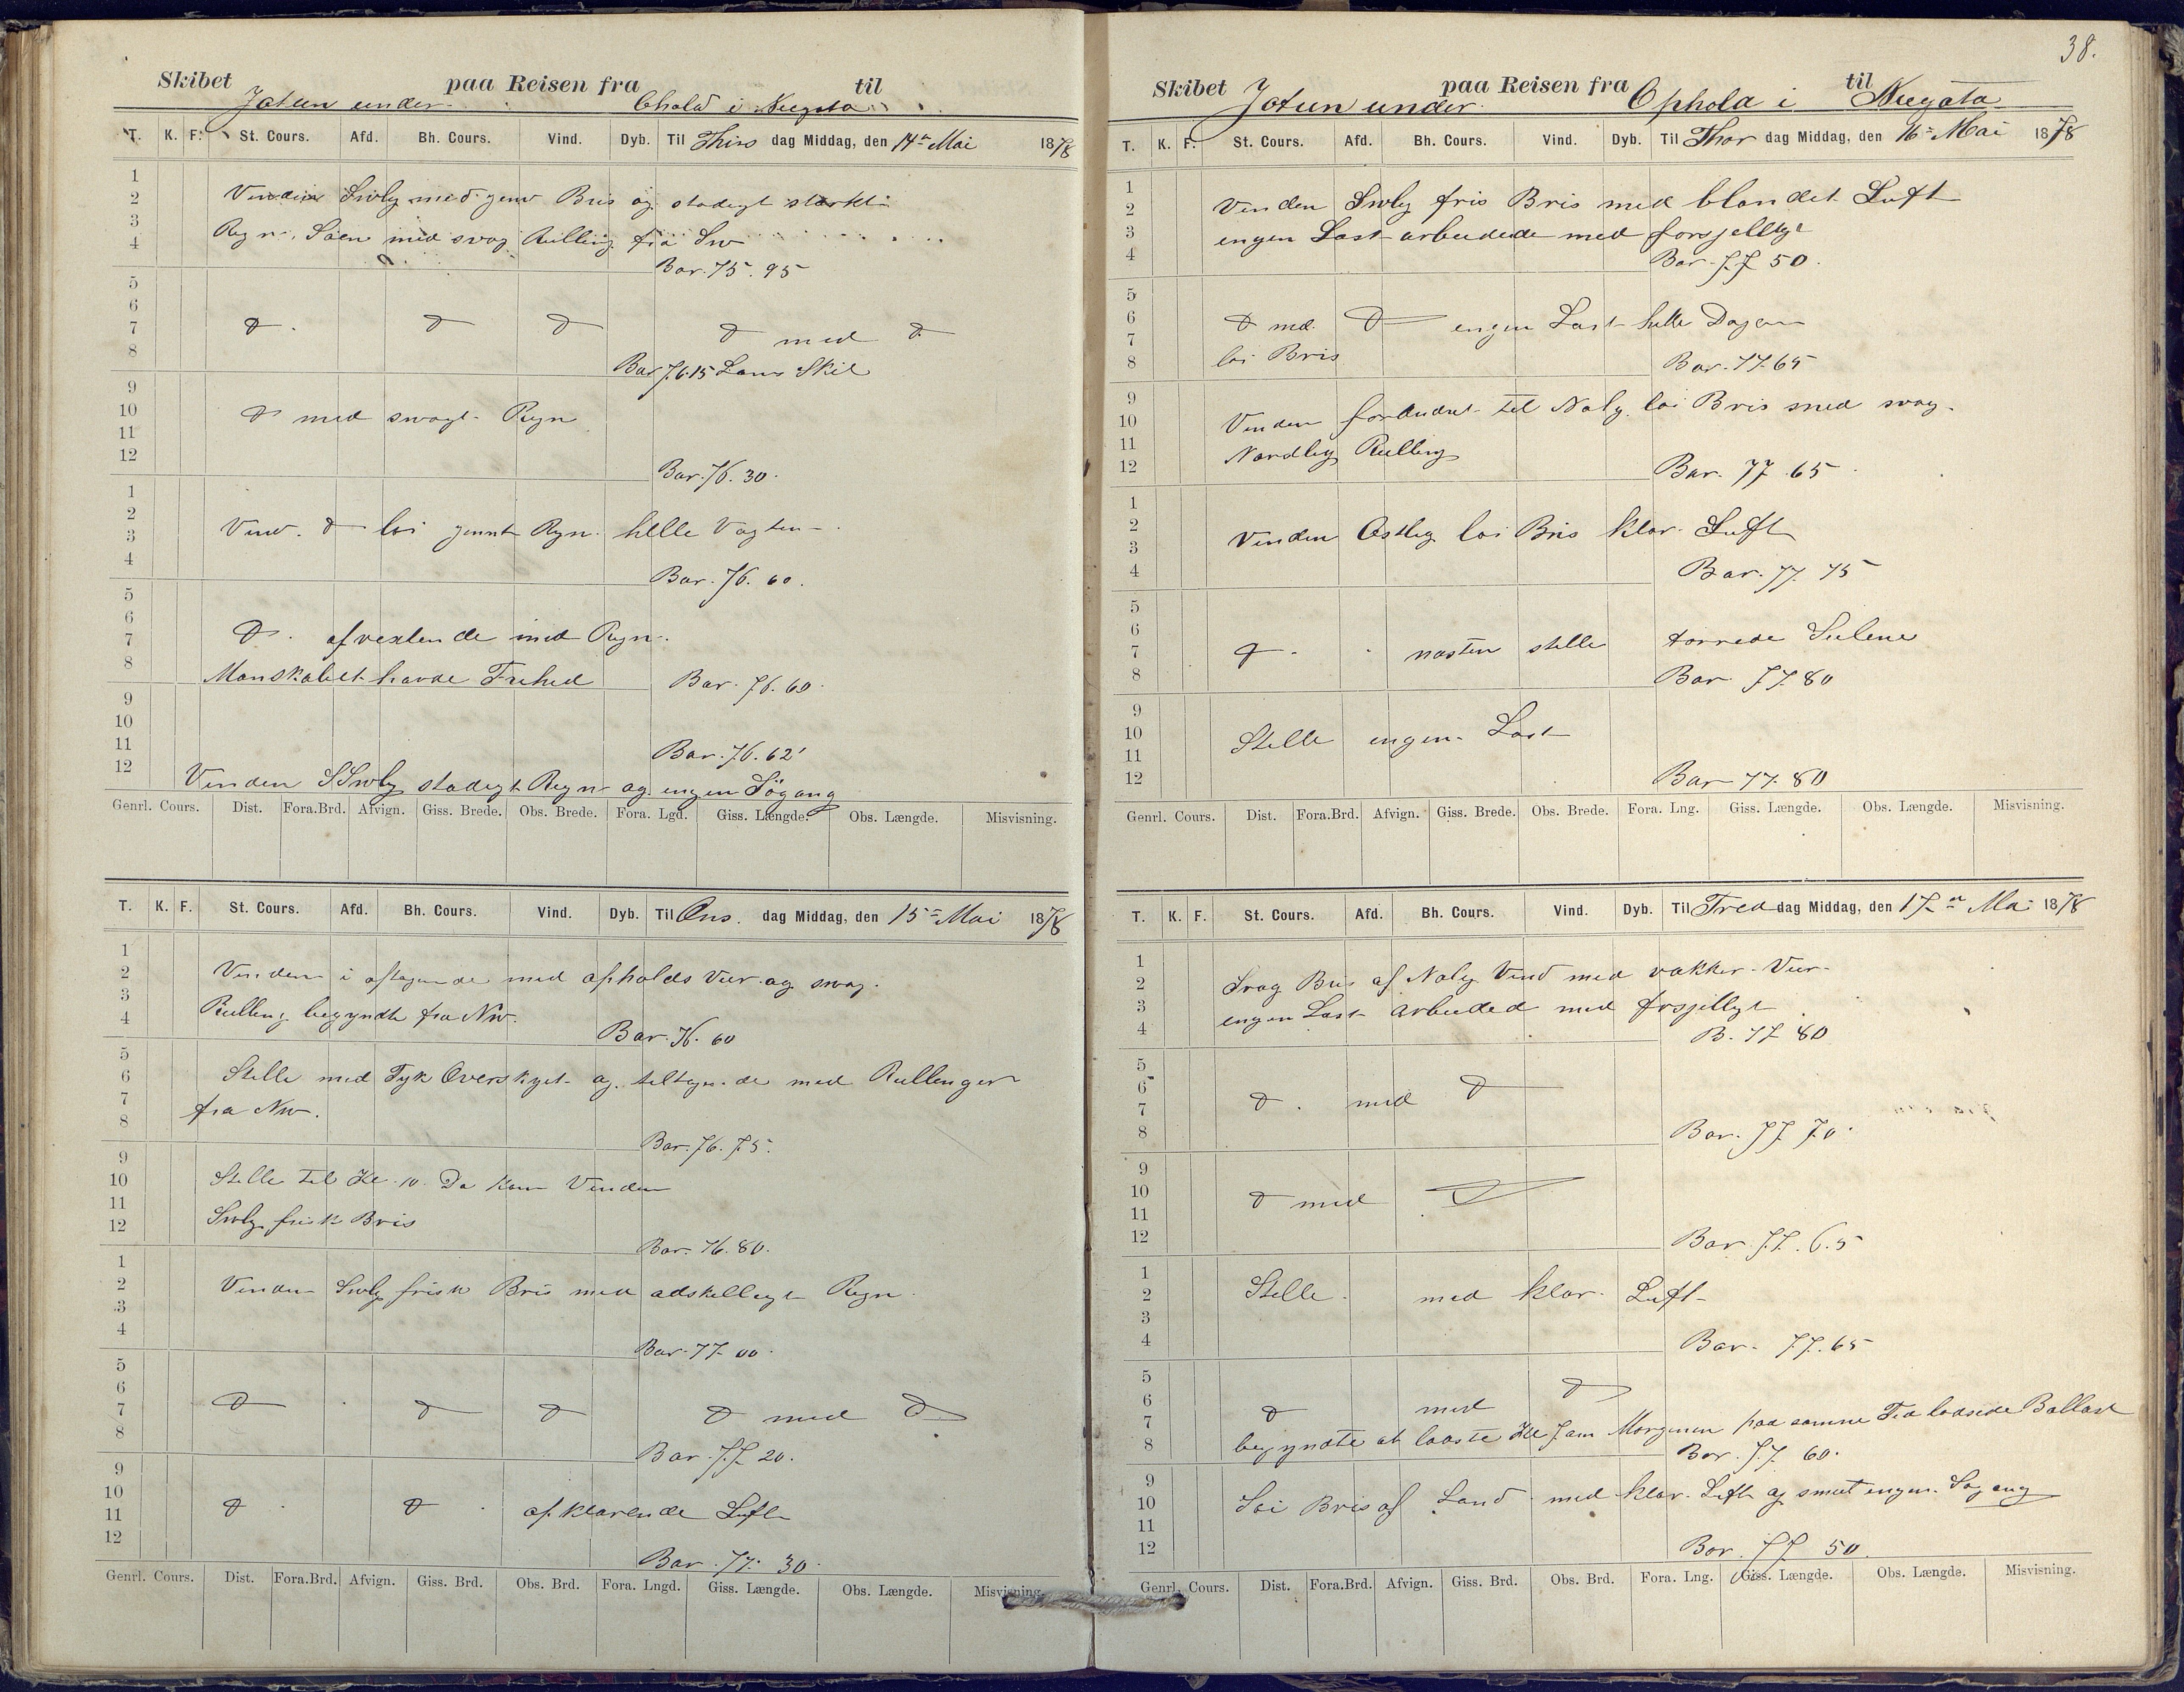 Skibet Jotun under paa Reisen fra Ohold i Nuegata til
T. K. F. St. Cours. Afd. Bh. Cours. Vind. Dyb. Til Thirs dag Middag, den 14de Mai 1878
1
2
3
4
Vinden Swly med jevn Bris og stadigt stærkt
Regn. Söen med svag Rulling fra Sw
Bar. 75. 95
5
6
7
8
D. D D D med D.
Bar 76.15 Lans Skib
9
10
11
12
D med swagt Regn
Bar. 76. 30.
1
2
3
4
Vind. D loi jevnt Regn. hele Vagten
Bar. 76. 60.
5
6
7
8
D. afvexlende med Regn.
Manskabet havde Frihed Bar. 76. 60.
9
10
11
12
Bar. 76. 62
Vinden SSwly stadigt Regn og engen Sögang
Genrl. Cours. Dist. Fora.Brd. Afvign. Giss. Brede. Obs. Brede. Fora. Lgd. Giss. Længde. Obs. Længde. Misvisning.
T. K. F. St. Cours. Afd. Bh. Cours. Vind. Dyb. Til Ons. dag Middag, den 15= Mai 1878
1
2
3
4
Vinden i aftagende med opholds Veir og svag.
Rulling begyndte fra Nw.
Bar. 76. 60
5
6
7
8
Stille med Tyk Overskyet og teltagende med Rullenger
fra Nw.
Bar. 76. 75.
9
10
11
12
Stille til Kl. 10. Da kom Vinden
Swly frisk Bris
Bar. 76. 80.
1
2
3
4
Vinden Swly frisk Bris med adskelligt Regn.
Bar. 77. 00.
5
6
7
8
D D D D med D
Bar. 77 20.
9
10
11
12
D D afklarende Luft
Bar. 77. 30.
Genrl. Cours. Dist. Fora.Brd. Afvign. Giss. Brd. Obs. Brd. Fora. Lngd. Giss. Længde. Obs. Længde. Misvisning.
38.
Skibet Jotun under paa Reisen fra Ophold i til Nuegata
T. K. F. St. Cours. Afd. Bh. Cours. Vind. Dyb. Til Thors dag Middag, den 16= Mai 1878
1
2
3
4
Vinden Swly fris Bris med blandet Luft
engen Last arbeidede med forsjelligt
Bar. 77 50.
5
6
7
8
D med. D engen Last helle Dagen
loi Bris
Bar. 77.65
9
10
11
12
Vinden forandret til Noly. loi Bris med svag
Nordlig Rulling
Bar. 77 65
1
2
3
4
Vinden Ostlig loi Bris klar Luft
Bar. 77. 75
5
6
7
8
D. næsten stille törrede Seilene
Bar 77.80
9
10
11
12
Stille engen Last
Bar 77. 80
Genrl. Cours. Dist. Fora.Brd. Afvign. Giss. Brede. Obs. Brede. Fora. Lng. Giss. Længde. Obs. Længde. Misvisning.
T. K. F. St. Cours. Afd. Bh. Cours. Vind. Dyb. Til Fred dag Middag, den 17de Mai 1878
1
2
3
4
Svag Bris af Noly Vind med vakker Veir
engen Last arbeided med forsjelligt
B. 77 80
5
6
7
8
D. med D
Bar. 77 70.
9
10
11
12
D med D
Bar. 77. 65
1
2
3
4
Stille. med klar Luft
Bar. 77. 65
5
6
7
8
D med D
begyndte at laaste Kl 7 am Morgenen paa samme Tid lossede Ballast
Bar. 77 60.
9
10
11
12
Loi Bris af Land med klar Luft og smeet engen Sogang
Bar. 77 50.
Genrl. Cours. Dist. Fora.Brd. Afvign. Giss. Brd. Obs. Brd. Fora. Lng. Giss. Længde. Obs. Længde. Misvisning.